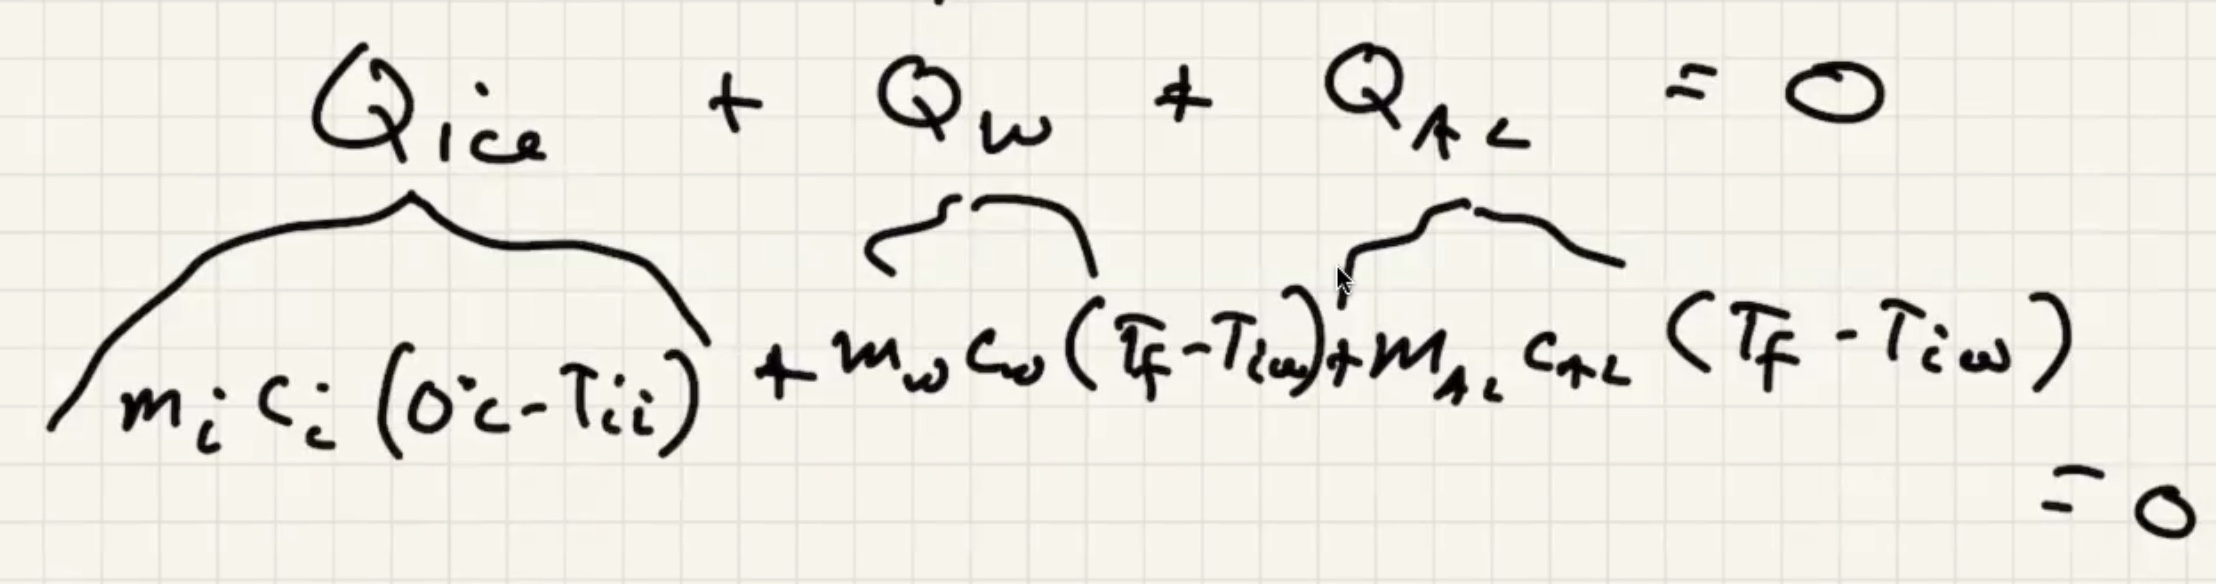 Qice + Qw + QAL = 0
mi ci (0°c - Tii) + mw cw (Tf - Tiw) + mAL cAL (Tf - Tiw)
= 0